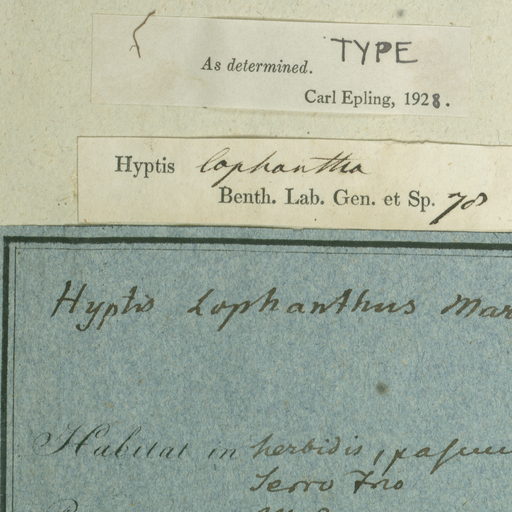 TYPE
As determined.
Carl Epling, 1928.
Hyptis lophantha
Benth. Lab. Gen. et Sp. 78
Hyptis Lophanthus Mar
Habitat in herbidis, pascu
Serro Frio